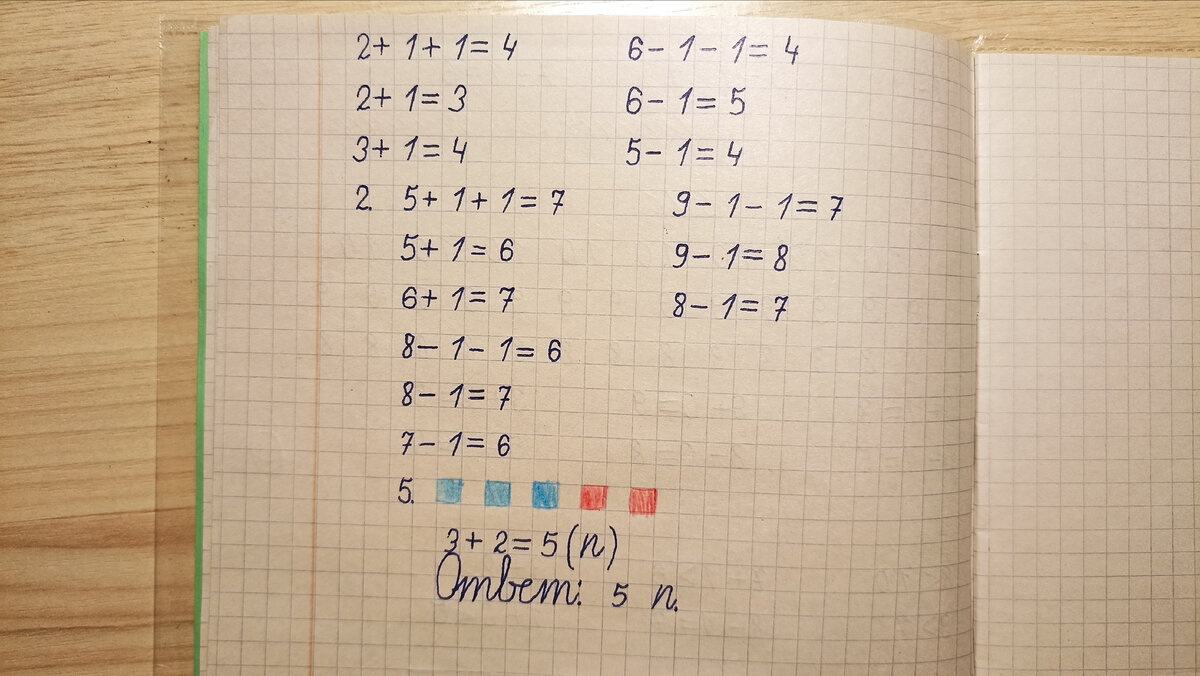 2+ 1+ 1= 4 6- 1- 1= 4
2+ 1= 3 6- 1= 5
3+ 1= 4 5- 1= 4
2. 5+ 1+ 1= 7 9- 1- 1= 7
5+ 1= 6 9- 1= 8
6+ 1= 7 8- 1= 7
8- 1- 1= 6
8- 1= 7
7- 1= 6
5.
3+ 2= 5 (п)
Ответ: 5 п.